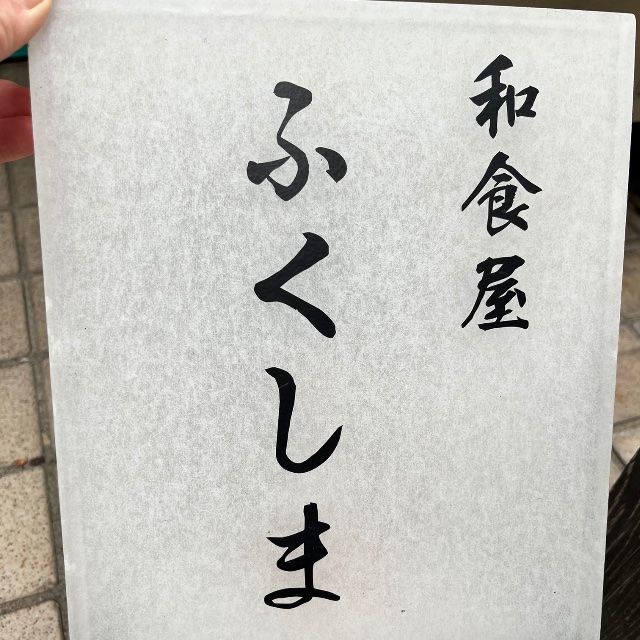 和食屋
ふくしま